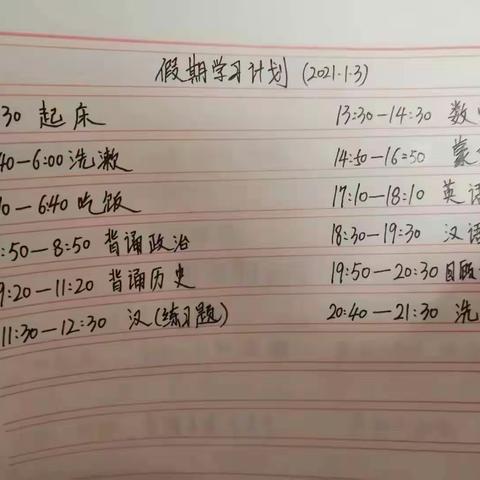 假期学习计划 (2021.1.3)
30 起床
40—6:00 洗漱
0—6:40 吃饭
:50—8:50 背诵政治
9:20—11:20 背诵历史
11:30—12:30 汉(练习题)
13:30—14:30 数
14:50—16:50 蒙
17:10—18:10 英语
18:30—19:30 汉语
19:50—20:30
20:40—21:30 洗